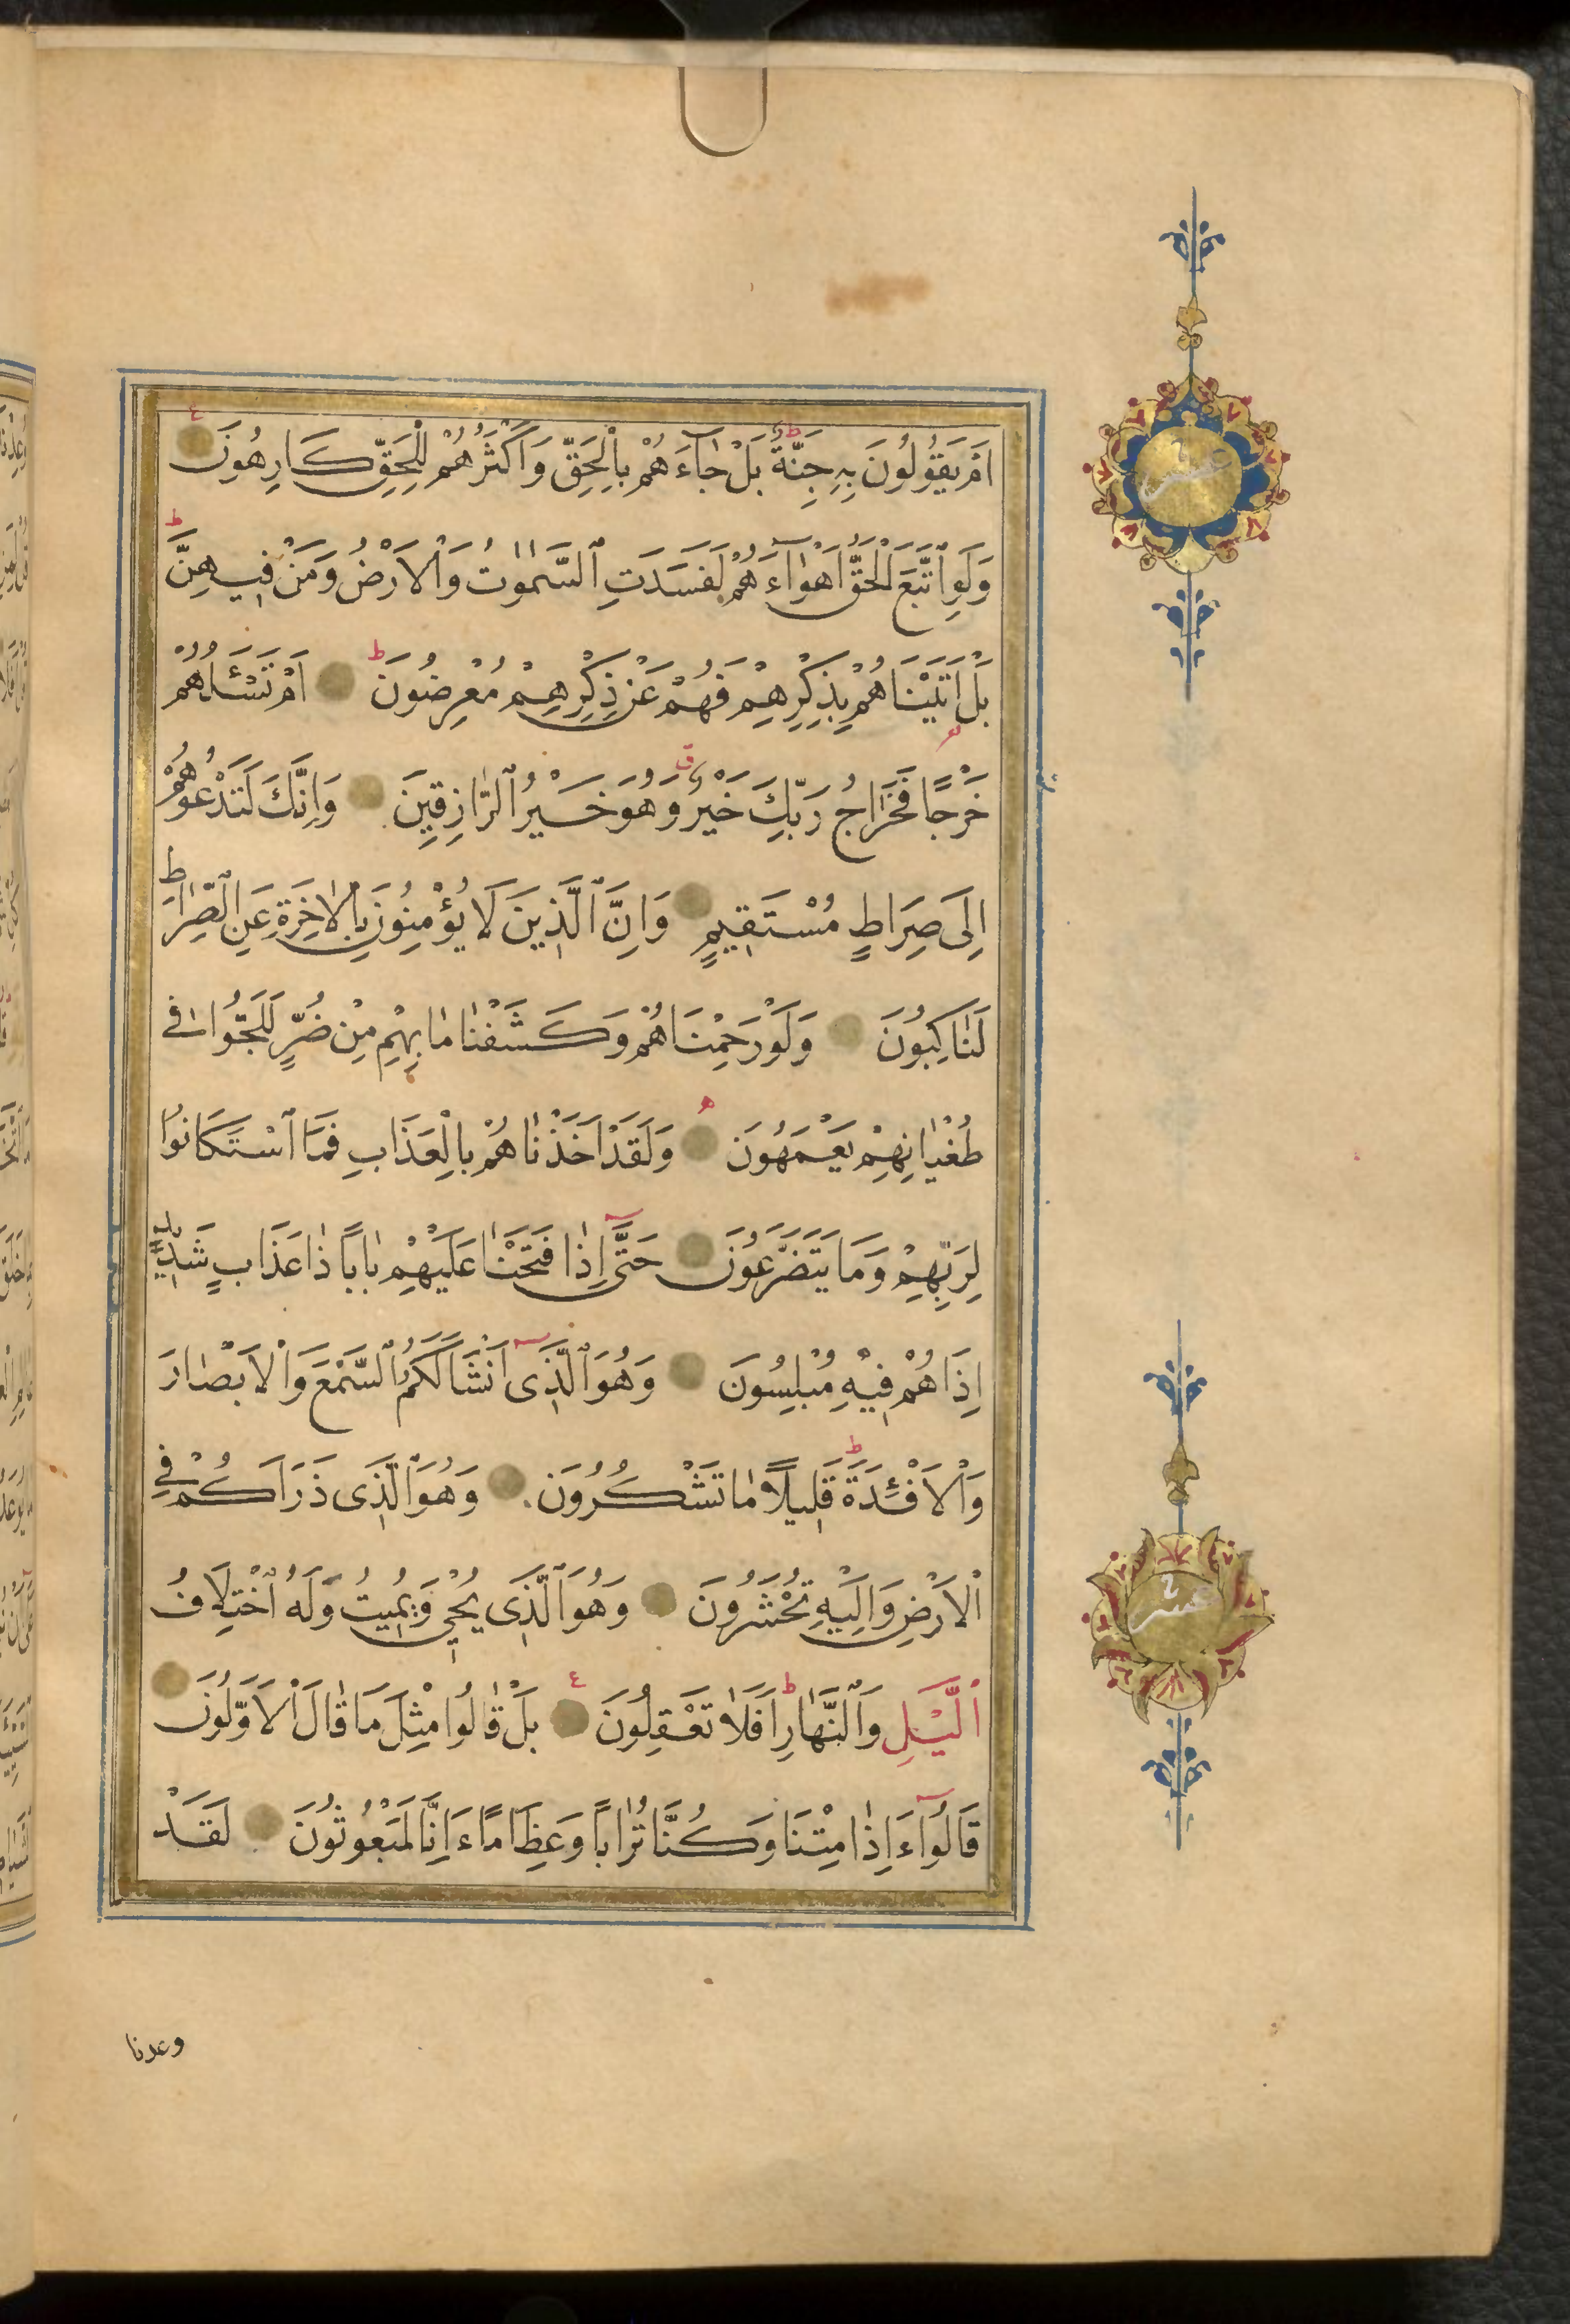 اَمْ يَقُولُونَ بِهِ جِنَّةٌ بَلْ جَٓاءَهُمْ بِالْحَقِّ وَاَكْثَرُهُمْ لِلْحَقِّ كَارِهُونَ
وَلَوِ اتَّبَعَ الْحَقُّ اَهْوَٓاءَهُمْ لَفَسَدَتِ السَّمٰوٰتُ وَالْاَرْضُ وَمَنْ فِيهِنَّ
بَلْ اَتَيْنَاهُمْ بِذِكْرِهِمْ فَهُمْ عَنْ ذِكْرِهِمْ مُعْرِضُونَ اَمْ تَسْـَٔلُهُمْ
خَرْجًا فَخَرَاجُ رَبِّكَ خَيْرٌ وَهُوَ خَيْرُ الرَّازِقِينَ وَاِنَّكَ لَتَدْعُوهُمْ
اِلَى صِرَاطٍ مُسْتَقِيمٍ وَاِنَّ الَّذِينَ لَا يُؤْمِنُونَ بِالْاٰخِرَةِ عَنِ الصِّرَاطِ
لَنَاكِبُونَ وَلَوْ رَحِمْنَاهُمْ وَكَشَفْنَا مَا بِهِمْ مِنْ ضُرٍّ لَلَجُّوا فِي
طُغْيَانِهِمْ يَعْمَهُونَ وَلَقَدْ اَخَذْنَاهُمْ بِالْعَذَابِ فَمَا اسْتَكَانُوا
لِرَبِّهِمْ وَمَا يَتَضَرَّعُونَ حَتَّٓى اِذَا فَتَحْنَا عَلَيْهِمْ بَابًا ذَا عَذَابٍ شَدِيدٍ
اِذَا هُمْ فِيهِ مُبْلِسُونَ وَهُوَ الَّذِٓى اَنْشَاَ لَكُمُ السَّمْعَ وَالْاَبْصَارَ
وَالْاَفْـِٔدَةَ قَلِيلًا مَا تَشْكُرُونَ وَهُوَ الَّذِى ذَرَاَكُمْ فِي
الْاَرْضِ وَاِلَيْهِ تُحْشَرُونَ وَهُوَ الَّذِى يُحْيِى وَيُمِيتُ وَلَهُ اخْتِلَافُ
الَّيْلِ وَالنَّهَارِ اَفَلَا تَعْقِلُونَ بَلْ قَالُوا مِثْلَ مَا قَالَ الْاَوَّلُونَ
قَالُٓوا ءَاِذَا مِتْنَا وَكُنَّا تُرَابًا وَعِظَامًا ءَاِنَّا لَمَبْعُوثُونَ لَقَدْ
وعدنا
عشر
عشر